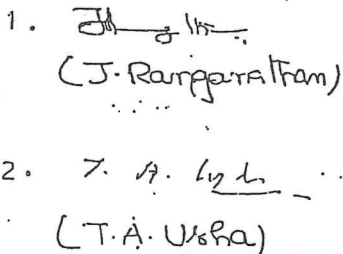 1.
(J. Ranganathan)
2. T. A.
(T.A. Usha)